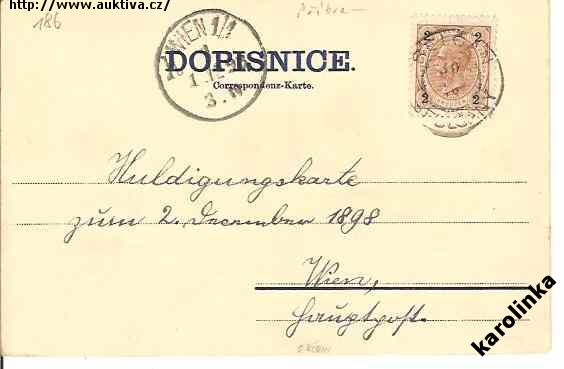 http://www.auktiva.cz/
186
WIEN 1/1
DOPISNICE.
Correspondenz-Karte.
2 2
2 2
30
Huldigungskarte
zum 2. December 1898
Wien,
Hauptpost.
karolinka